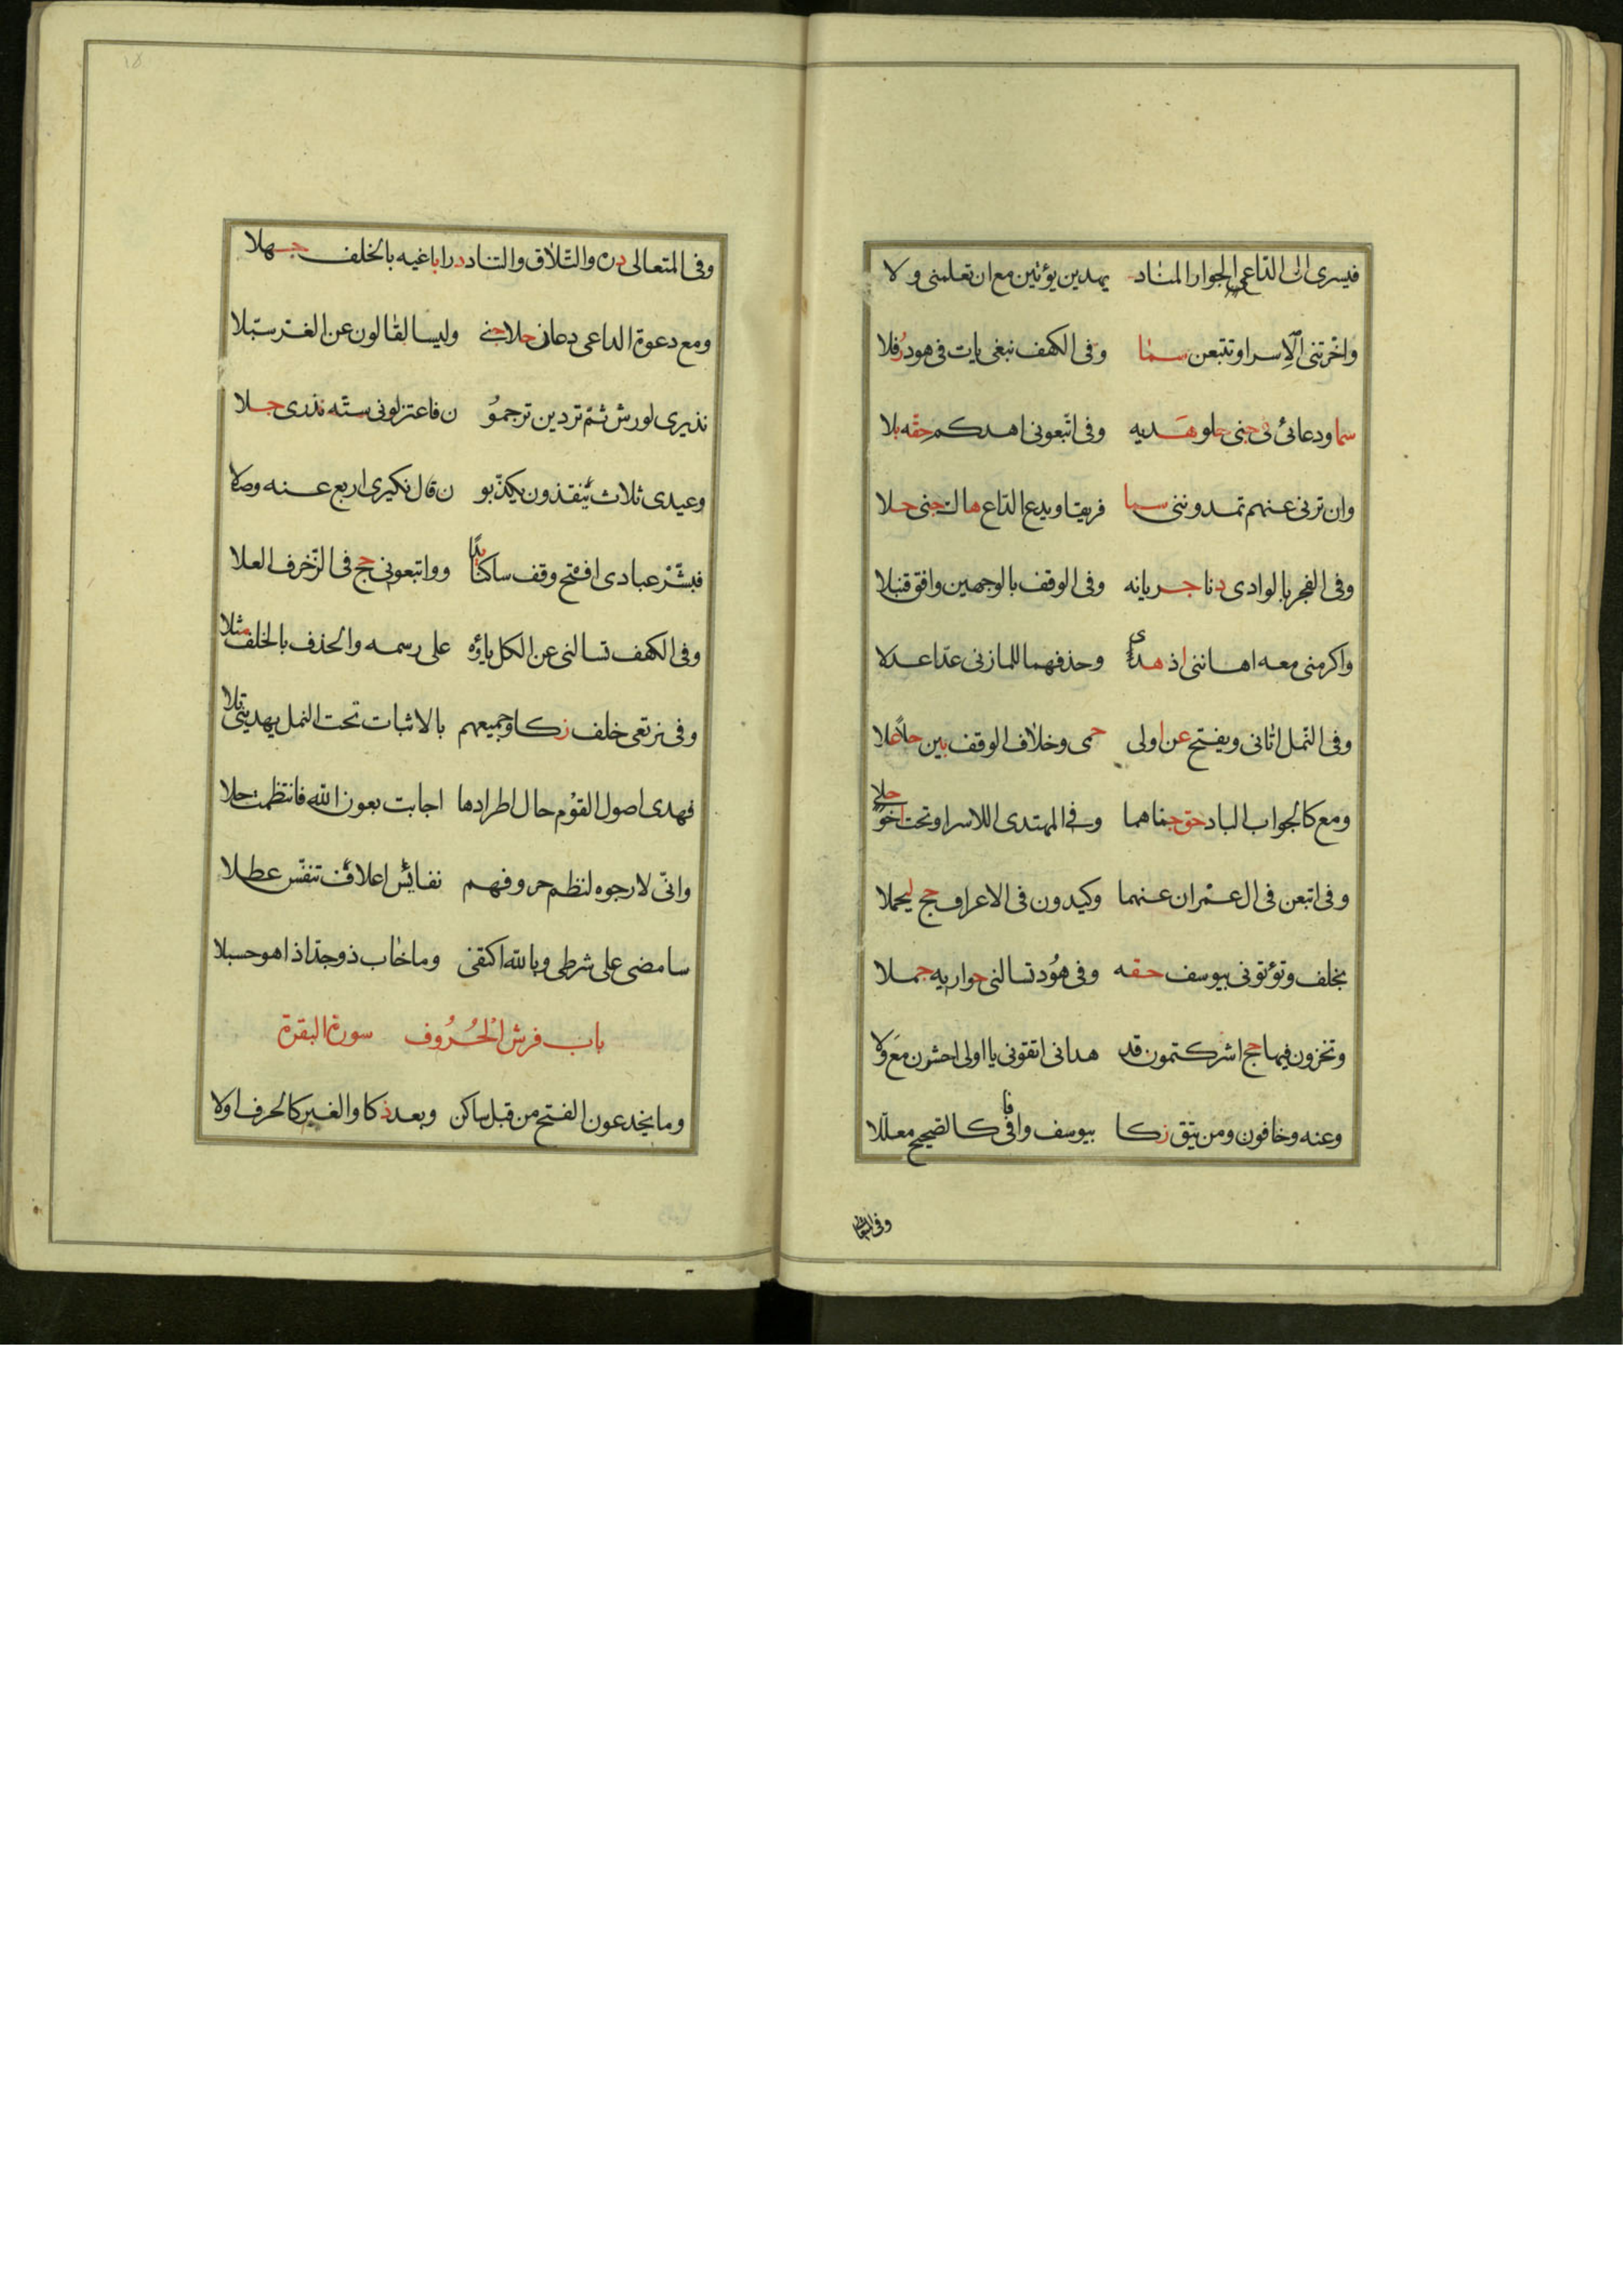 فيسرى الى الداعي الجوار المناد يهدين يؤتين مع ان تعلمنى ولا
واخرتنى الاسرا وتتبعن سما وفى الكهف نبغى يات فى هود رفلا
سما ودعائى فى جنى حلو هديه وفى اتبعونى اهدكم حقه بلا
وان ترنى عنهم تمدوننى سما فريقا ويدع الداع هاك جنى حلا
وفى الفجر بالوادى دنا جريانه وفى الوقف بالوجهين وافق قنبلا
واكرمنى معه اهاننى اذ هدى وحذفهما للمازنى عدا عدلا
وفى النمل اتانى ويفتح عن اولى حمى وخلاف الوقف بين حلا علا
ومع كالجواب الباد حق جناهما وفى المهتدى الاسرا وتحت اخو حلى
وفى اتبعن فى ال عمران عنهما وكيدون فى الاعراف حج ليحملا
بخلف وتؤتونى بيوسف حقه وفى هود تسالنى حواريه جملا
وتخزون فيها حج اشركتمون قد هدانى اتقونى يا اولى اخشون مع ولا
وعنه وخافون ومن يتق زكا بيوسف وافى كالصحيح معللا
وفى المتعالى دره والتلاق والتناد درا باغيه بالخلف جهلا
ومع دعوة الداعى دعانى حلا جنى وليسا لقالون عن الغر سبلا
نذيرى لورش ثم تردين ترجمو ن فاعتزلونى سته نذرى جلا
وعيدى ثلاث ينقذون يكذبو ن قال نكيرى اربع عنه وصلا
فبشر عبادى افتح وقف ساكنا يدا وواتبعونى حج فى الزخرف العلا
وفى الكهف تسالنى عن الكل ياؤه على رسمه والحذف بالخلف مثلا
وفى نرتعى خلف زكا وجميعهم بالاثبات تحت النمل يهدينى تلا
فهذى اصول القوم حال اطرادها اجابت بعون الله فانتظمت حلا
وانى لارجوه لنظم حروفهم نفائس اعلاق تنفس عطلا
سامضى على شرطى وبالله اكتفى وما خاب ذو جد اذا هو حسبلا
باب فرش الحروف سورة البقرة
وما يخدعون الفتح من قبل ساكن وبعد ذكا والغير كالحرف اولا